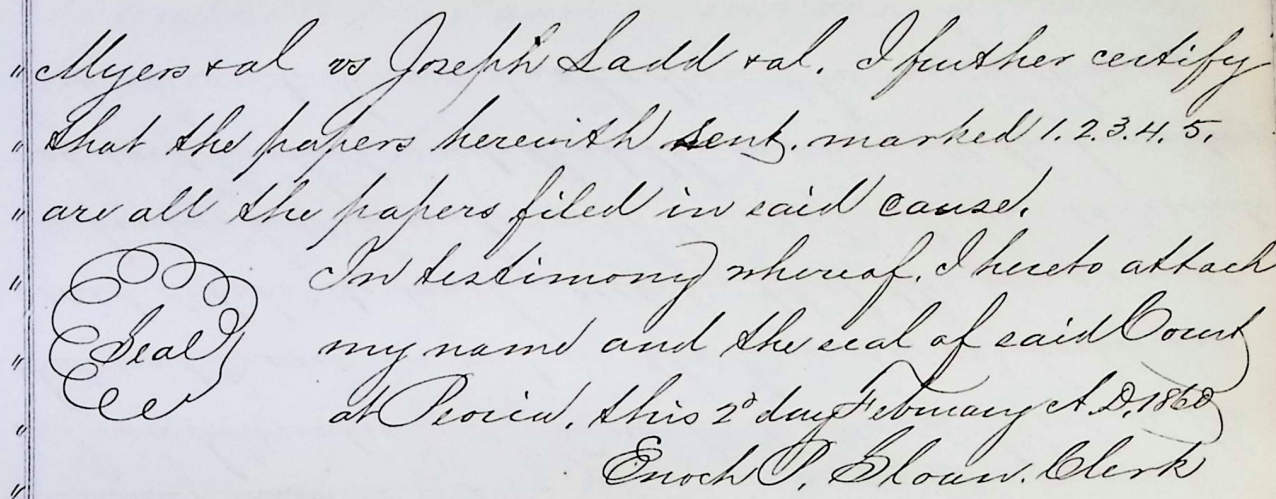 " Myers & al vs Joseph Ladd & al. I further certify
" that the papers herewith sent. marked 1. 2. 3. 4. 5.
" are all the papers filed in said cause.
" In testimony whereof, I hereto attach
" Seal my name and the seal of said Court
" at Peoria, this 2d day February A.D. 1860
" Enoch P. Sloan. Clerk